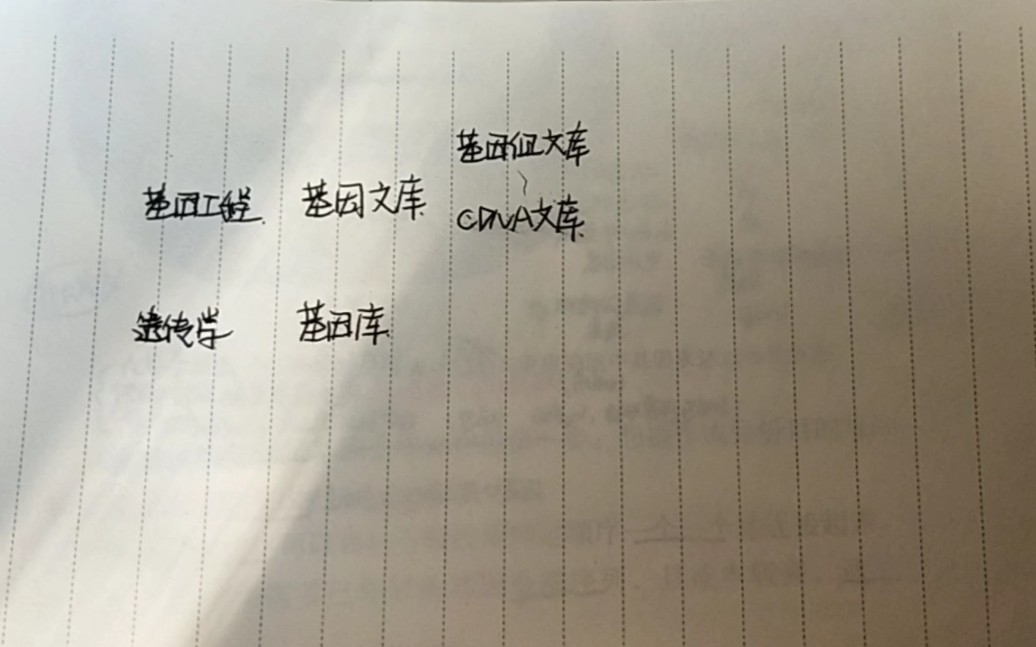 基因组文库
基因工程 基因文库
cDNA文库
遗传学 基因库